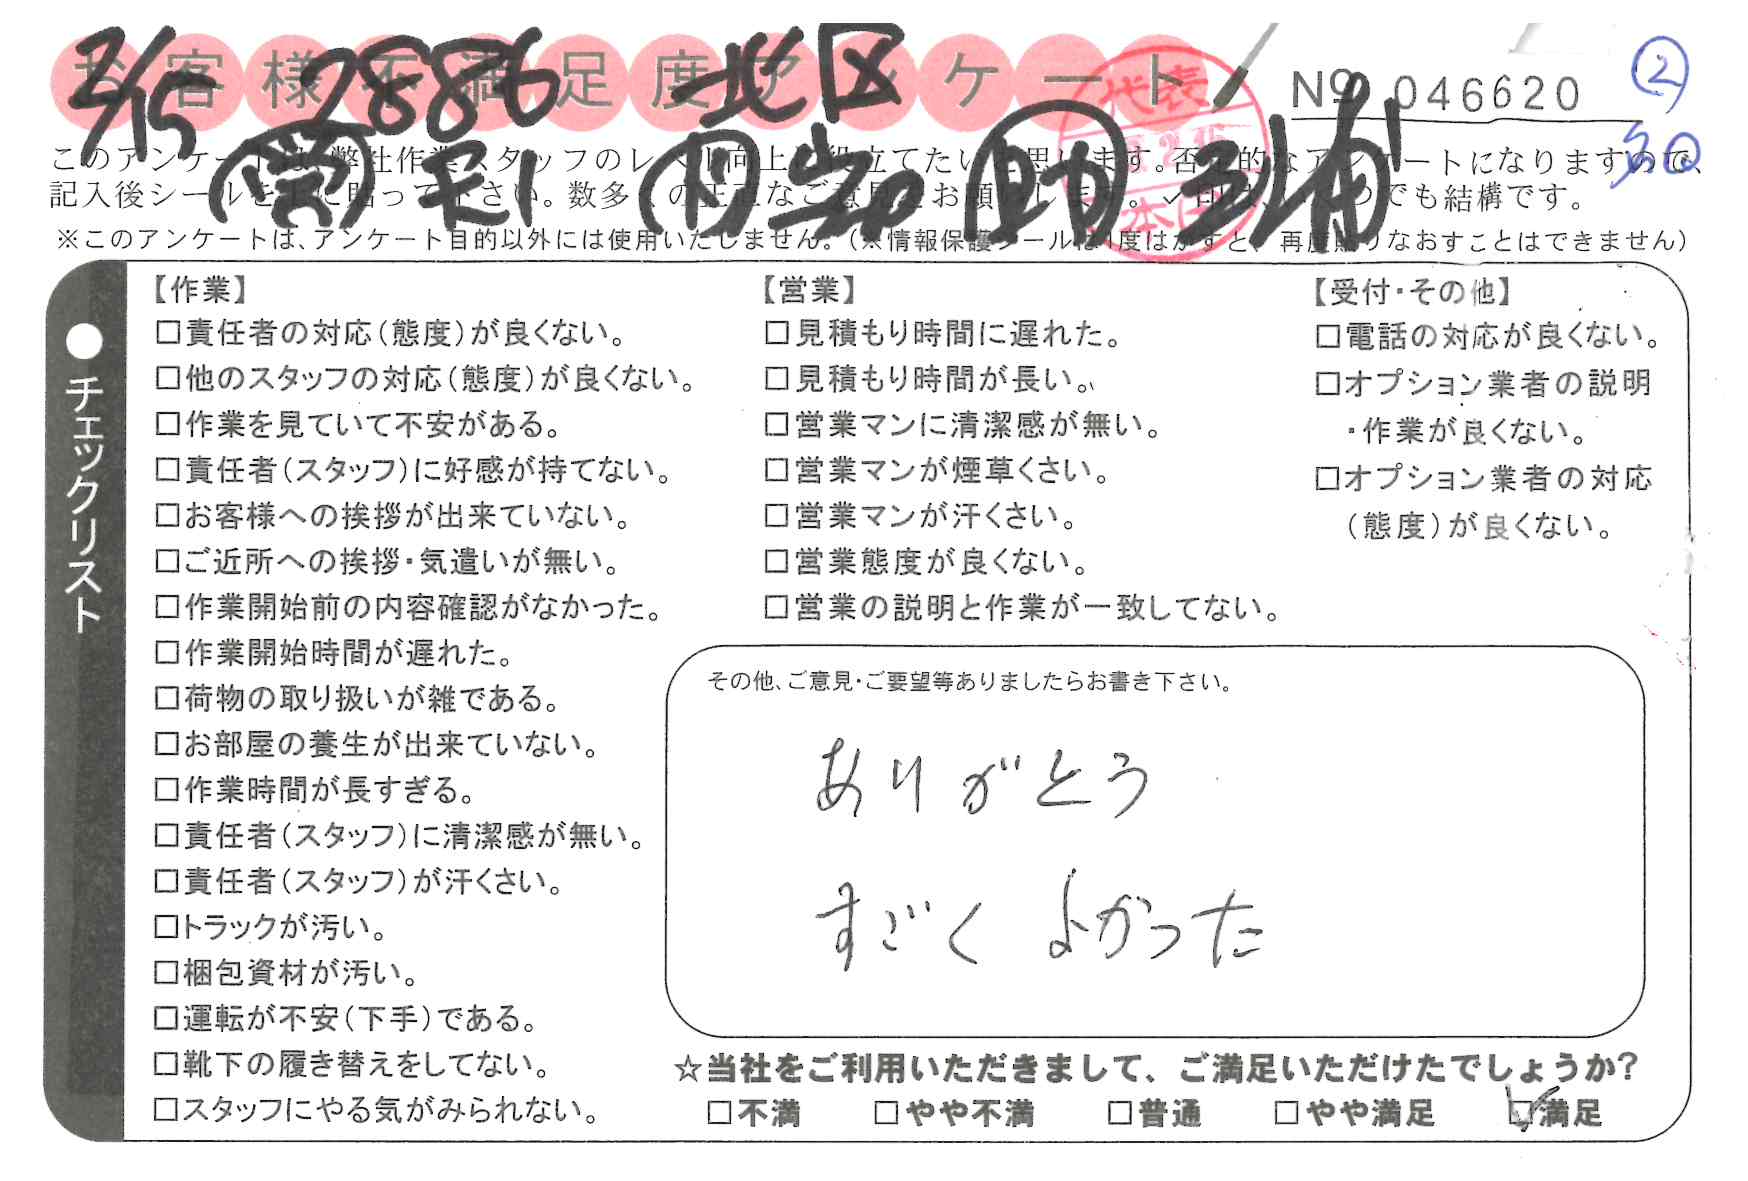 お客様不満足度アンケート
2/15 2886 北区
No 046620
②
30
このアンケートは、弊社作業スタッフのレベル向上に役立てたいと思います。否定的なアンケートになりますので、
記入後シールを上に貼って下さい。数多くの正直なご意見をお願いします。✓印は、いくつでも結構です。
※このアンケートは、アンケート目的以外には使用いたしません。(※情報保護シールは1度はがすと、再度貼りなおすことはできません)
代表
●チェックリスト
【作業】
□責任者の対応(態度)が良くない。
□他のスタッフの対応(態度)が良くない。
□作業を見ていて不安がある。
□責任者(スタッフ)に好感が持てない。
□お客様への挨拶が出来ていない。
□ご近所への挨拶・気遣いが無い。
□作業開始前の内容確認がなかった。
□作業開始時間が遅れた。
□荷物の取り扱いが雑である。
□お部屋の養生が出来ていない。
□作業時間が長すぎる。
□責任者(スタッフ)に清潔感が無い。
□責任者(スタッフ)が汗くさい。
□トラックが汚い。
□梱包資材が汚い。
□運転が不安(下手)である。
□靴下の履き替えをしてない。
□スタッフにやる気がみられない。
【営業】
□見積もり時間に遅れた。
□見積もり時間が長い。
□営業マンに清潔感が無い。
□営業マンが煙草くさい。
□営業マンが汗くさい。
□営業態度が良くない。
□営業の説明と作業が一致してない。
【受付・その他】
□電話の対応が良くない。
□オプション業者の説明
・作業が良くない。
□オプション業者の対応
(態度)が良くない。
その他、ご意見・ご要望等ありましたらお書き下さい。
ありがとう
すごく よかった
☆当社をご利用いただきまして、ご満足いただけたでしょうか?
□不満 □やや不満 □普通 □やや満足 ☑満足